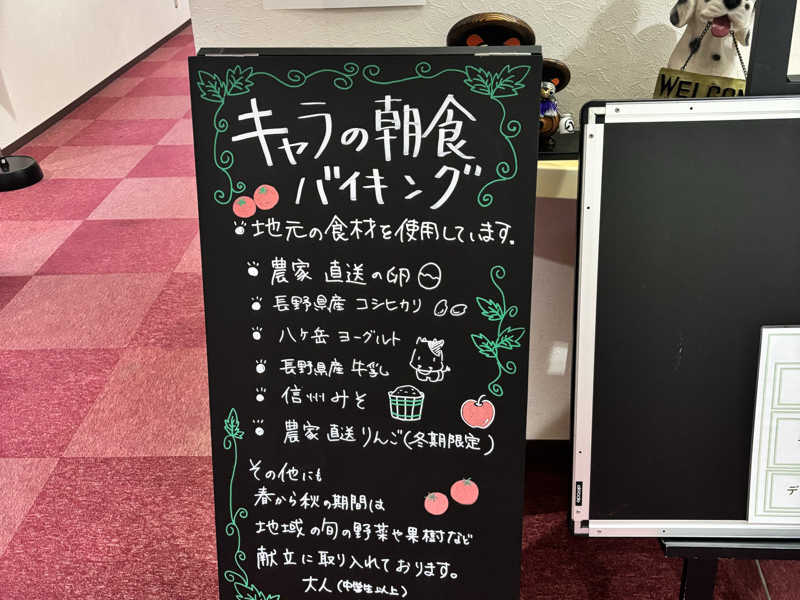 キャラの朝食
バイキング
地元の食材を使用しています。
農家 直送の卵
長野県産 コシヒカリ
八ヶ岳 ヨーグルト
長野県産 牛乳
信州みそ
農家 直送りんご(冬期限定)
その他にも
春から秋の期間は
地域の旬の野菜や果樹など
献立に取り入れております。
大人(中学生以上)
WELCOM
デ